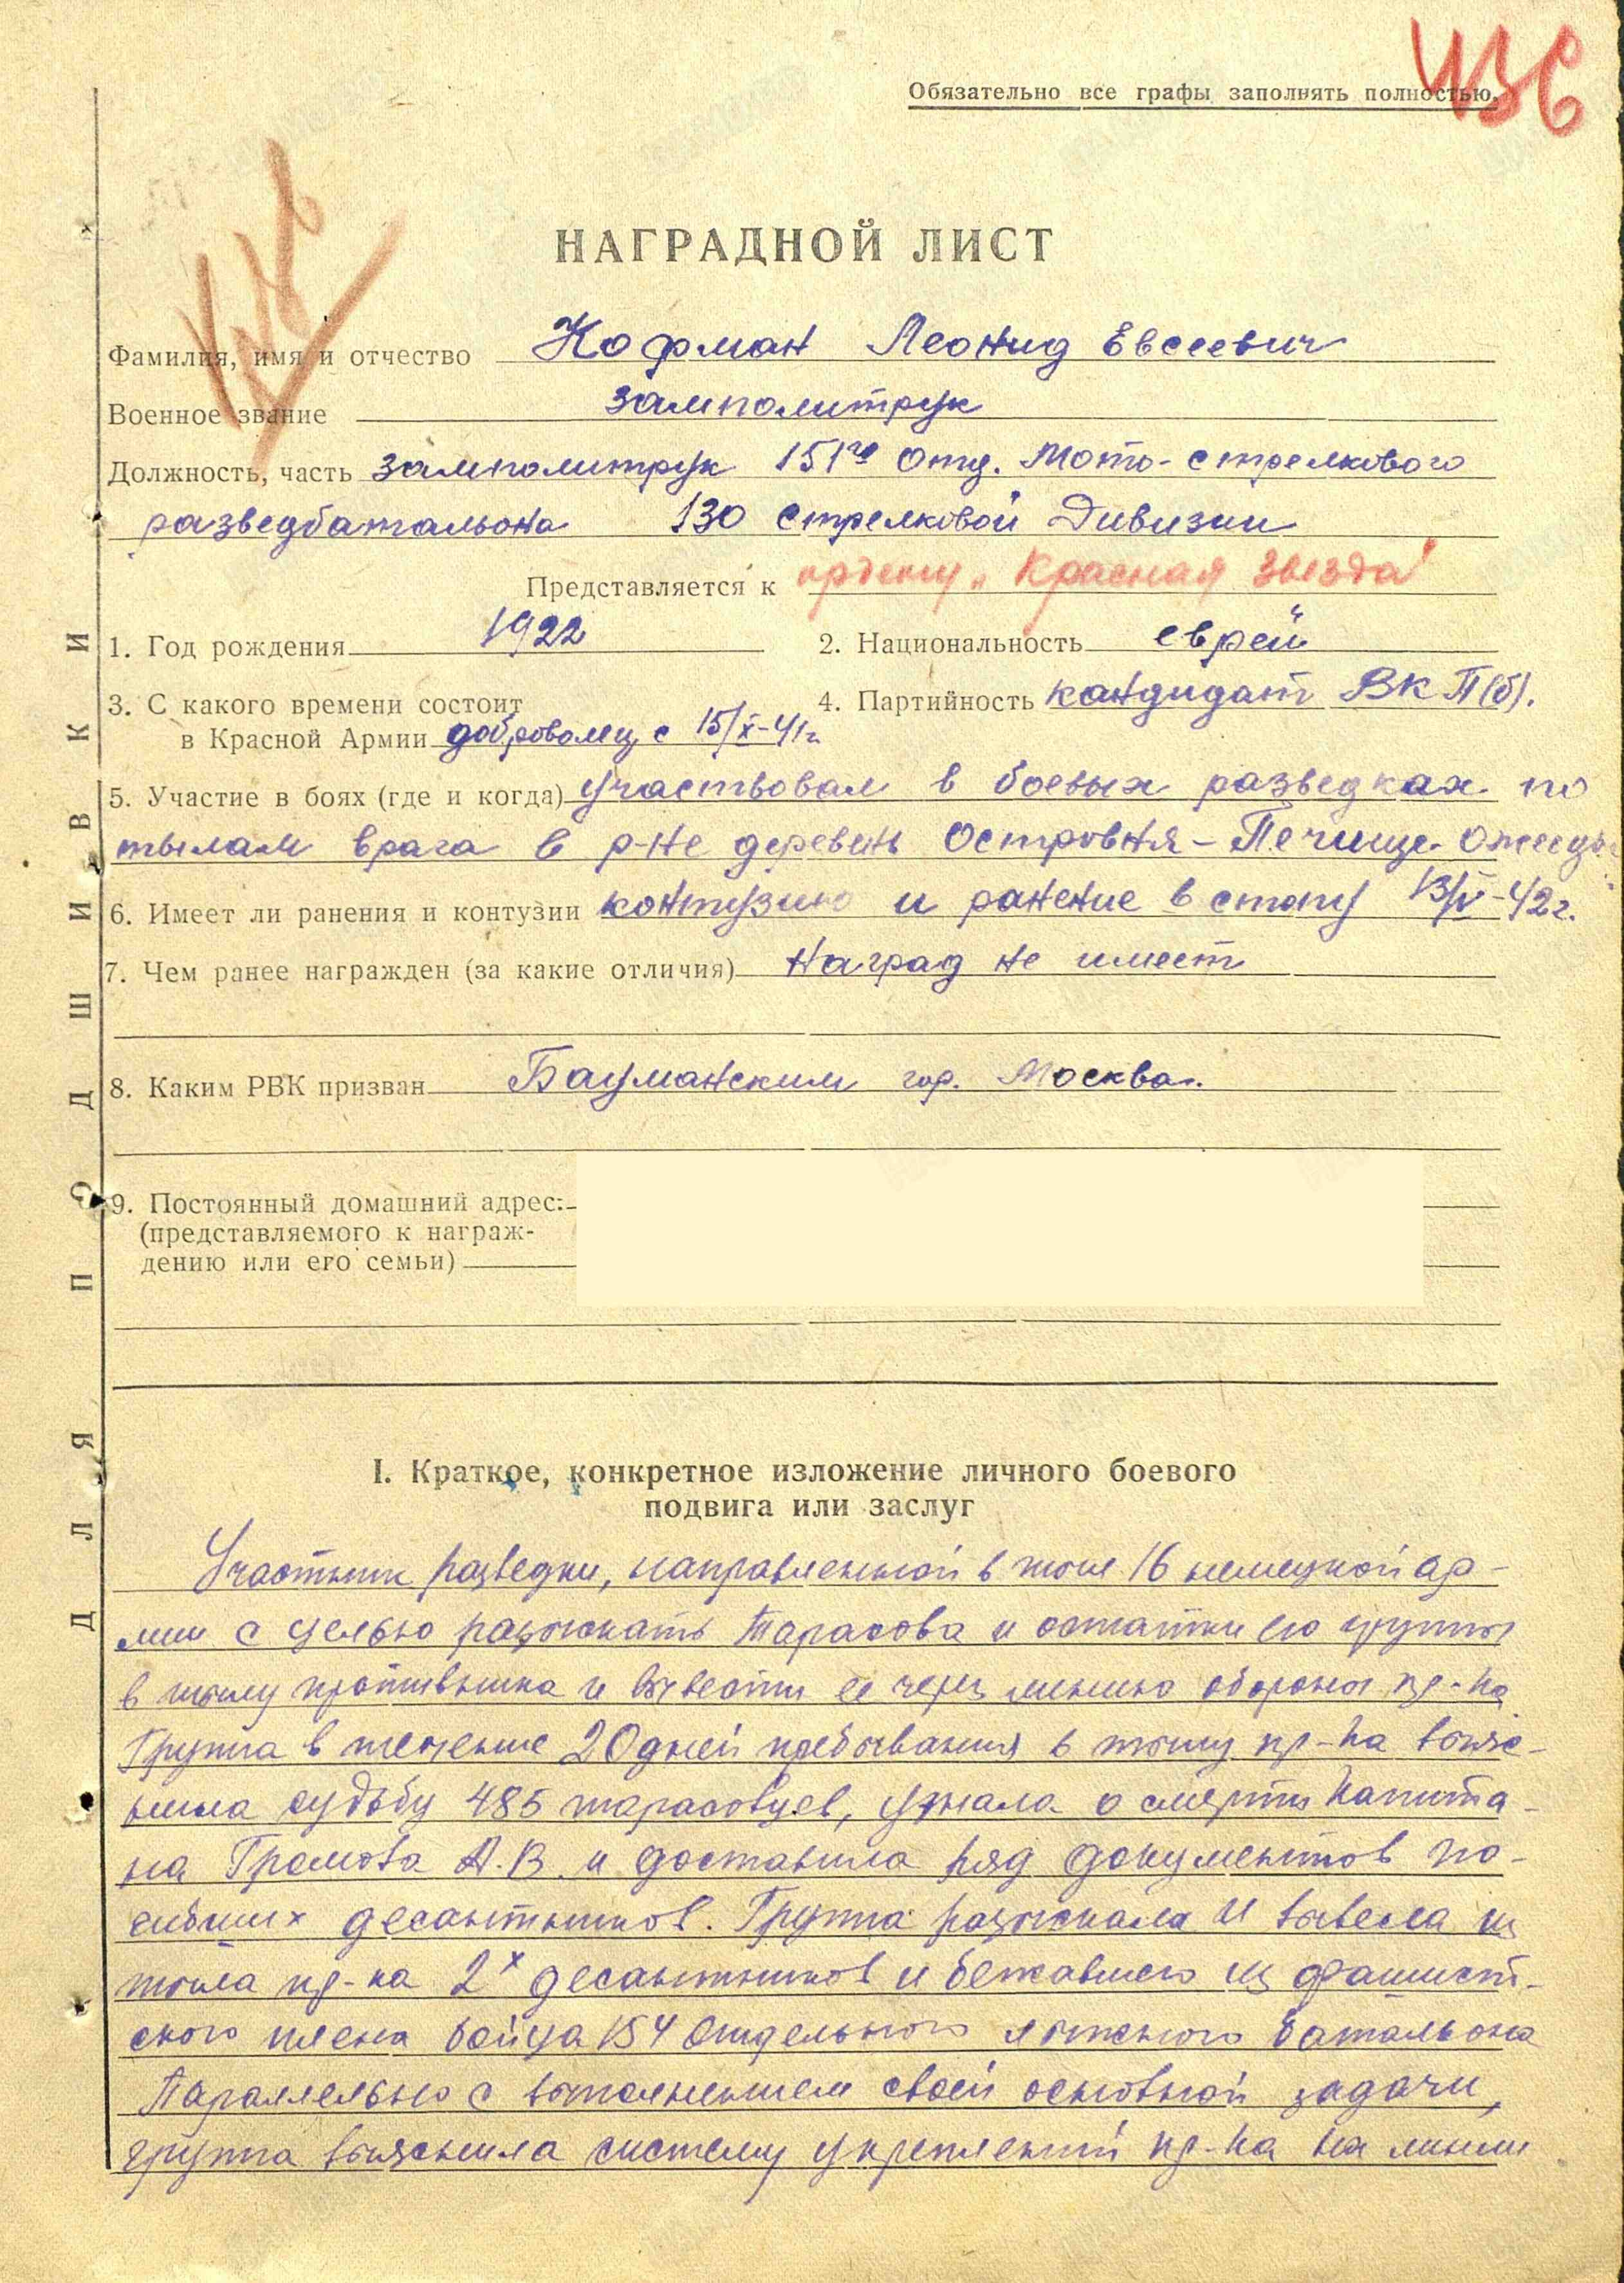 Обязательно все графы заполнять полностью.
НАГРАДНОЙ ЛИСТ
Фамилия, имя и отчество Кофман Леонид Евсеевич
Военное звание замполитрук
Должность, часть замполитрук 151го отд. Мото-стрелкового
разведбатальона 130 стрелковой Дивизии
Представляется к ордену "Красная Звезда"
1. Год рождения 1922
2. Национальность еврей
3. С какого времени состоит
в Красной Армии доброволец с 15/X-41г.
4. Партийность кандидат ВКП(б).
5. Участие в боях (где и когда) Участвовал в боевых разведках по
тылам врага в р-не деревень Островня - Печище
6. Имеет ли ранения и контузии контузию и ранение в стопу 13/IV-42г.
7. Чем ранее награжден (за какие отличия) Наград не имеет
8. Каким РВК призван Бауманским гор. Москва.
9. Постоянный домашний адрес:
(представляемого к награж-
дению или его семьи)
I. Краткое, конкретное изложение личного боевого
подвига или заслуг
Участник разведки, направленной в тыл 16 немецкой ар-
мии с целью разыскать Тарасова и остатки его группы
в тылу противника и вывести ее через линию обороны пр-ка
Группа в течение 20 дней пребывания в тылу пр-ка выяс-
нила судьбу 485 тарасовцев, узнала о смерти капита-
на Громова А.В. и доставила ряд документов по-
гибших десантников. Группа разыскала и вывела из
тыла пр-ка 2х десантников и бежавшего из фашист-
ского плена бойца 154 отдельного лыжного батальона
Параллельно с выполнением своей основной задачи,
группа выяснила систему укреплений пр-ка на линии
ДЛЯ ПОДШИВКИ